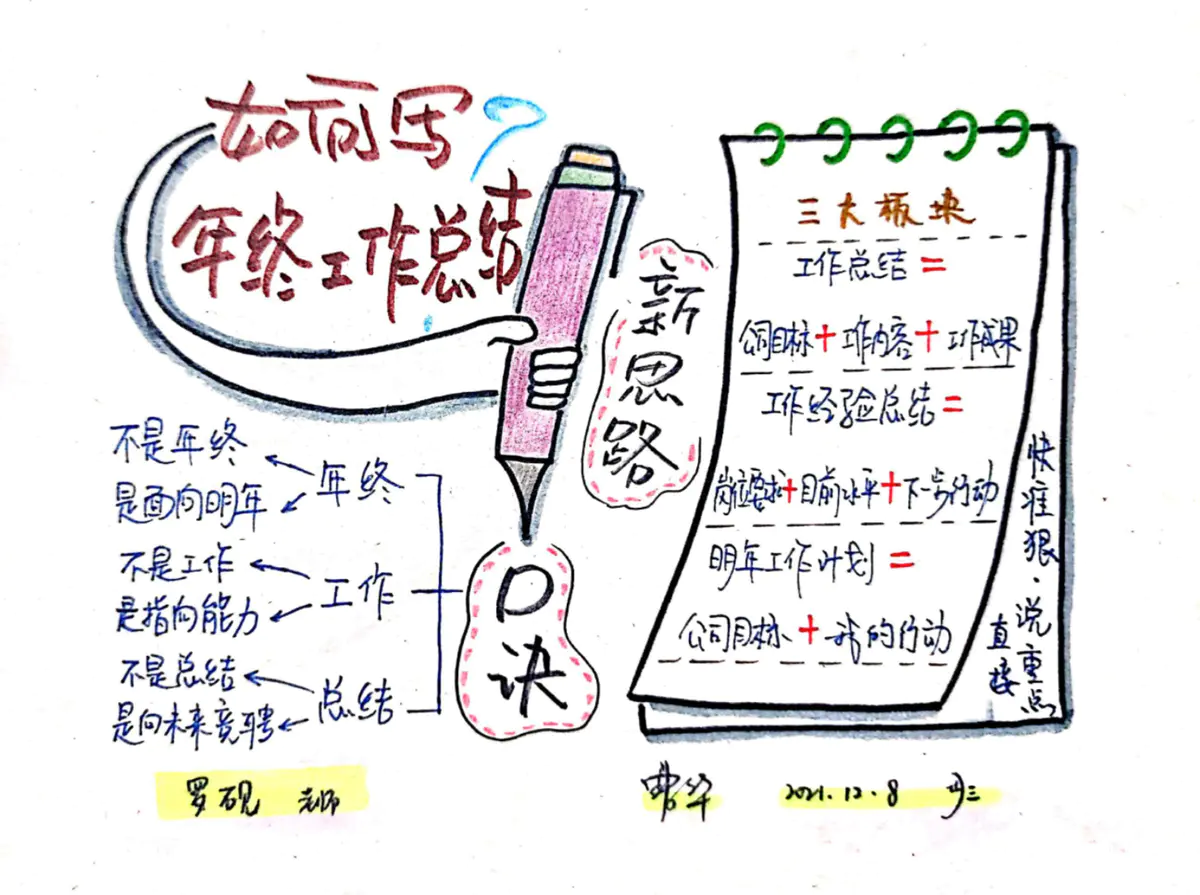 如何写?
年终工作总结
新思路
口诀
年终
不是年终
是面向明年
工作
不是工作
是指向能力
总结
不是总结
是向未来竞聘
三大板块
工作总结=
公司目标+工作内容+工作成果
工作经验总结=
岗位要求+目前水平+下一步行动
明年工作计划=
公司目标+我的行动
快准狠·说重点
直接
罗砚 老师
2021.12.8